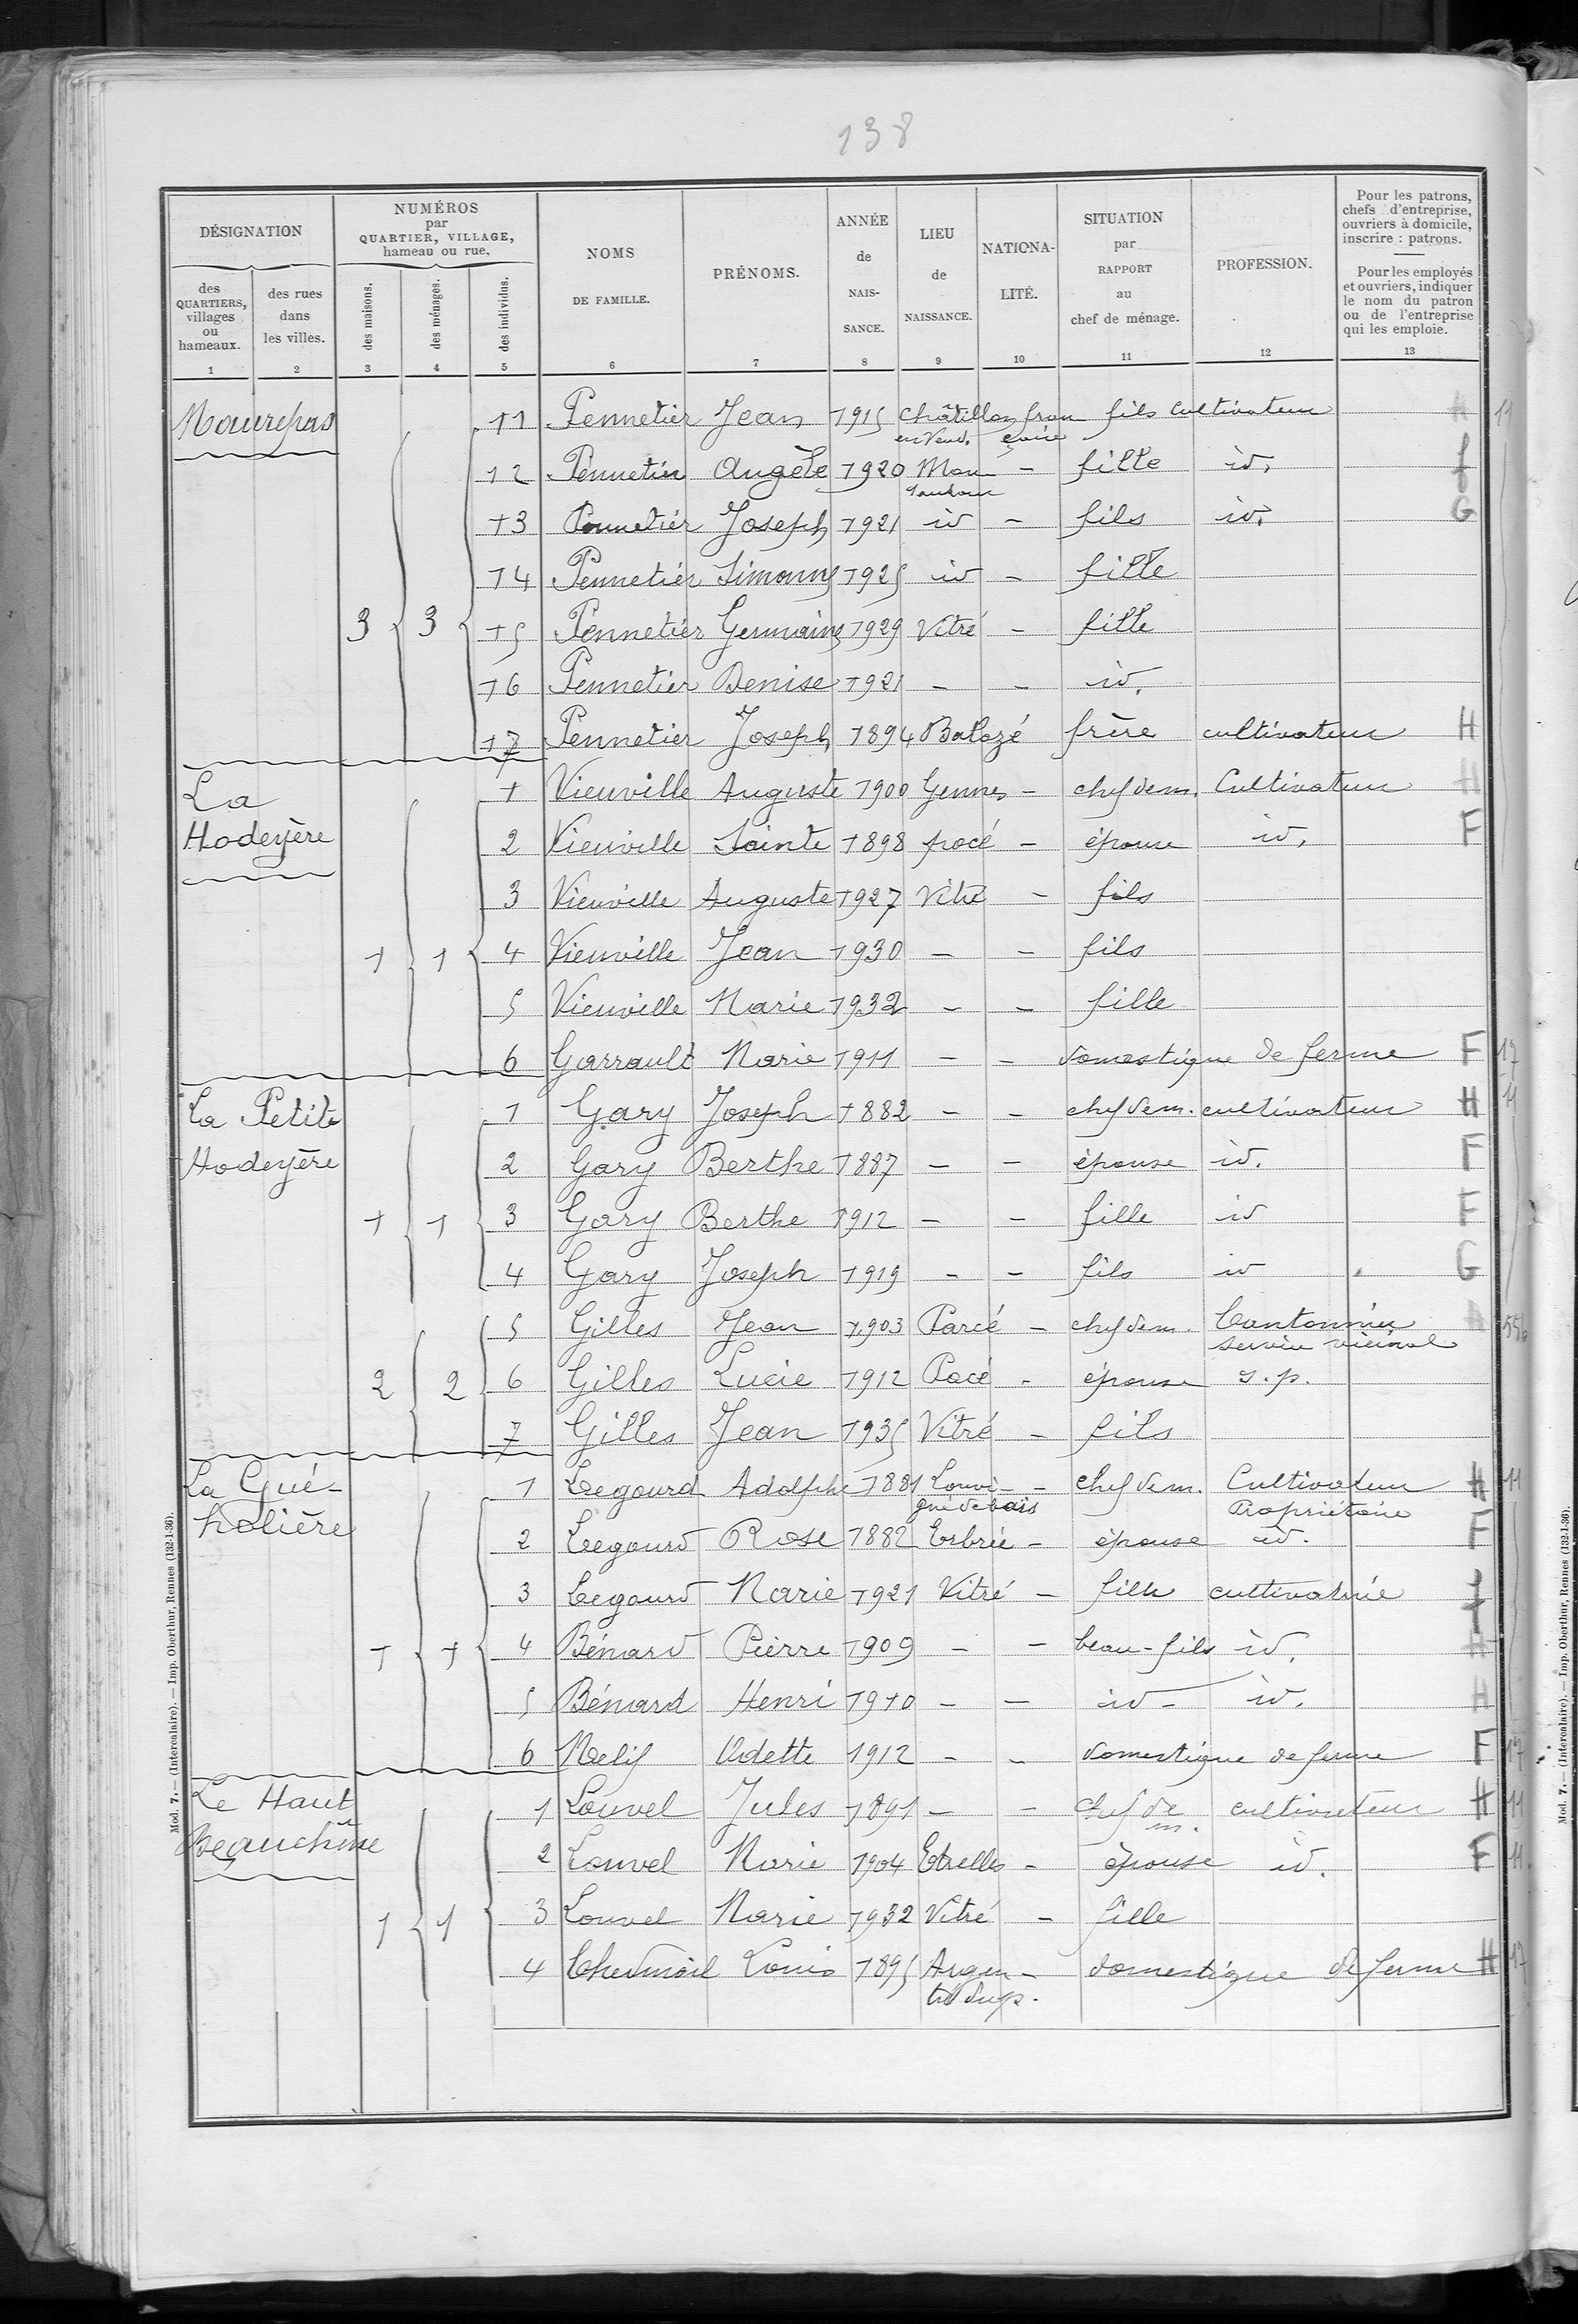 138
DÉSIGNATION
NUMÉROS
par
QUARTIER, VILLAGE,
hameau ou rue.
des
QUARTIERS,
villages
ou
hameaux.
des rues
dans
les villes.
des maisons.
des ménages.
des individus.
NOMS
DE FAMILLE.
PRÉNOMS.
ANNÉE
de
NAIS-
SANCE.
LIEU
de
NAISSANCE.
NATIONA-
LITÉ.
SITUATION
par
RAPPORT
au
chef de ménage.
PROFESSION.
Pour les patrons,
chefs d'entreprise,
ouvriers à domicile,
inscrire : patrons.
Pour les employés
et ouvriers, indiquer
le nom du patron
ou de l'entreprise
qui les emploie.
1 2 3 4 5 6 7 8 9 10 11 12 13
Maurepas 11 Pennetier Jean 1915 Châtillon fran fils cultivateur H 11
en Vend. çaise
12 Pennetier Angèle 1920 Mon - fille id. f
tautour
13 Pennetier Joseph 1921 id - fils id. G
14 Pennetier Simonne 1925 id - fille
3 3 15 Pennetier Germaine 1929 Vitré - fille
16 Pennetier Denise 1921 - - id.
17 Pennetier Joseph 1894 Balazé frère cultivateur H
La 1 Vieuville Auguste 1900 Gennes - chef dem. Cultivateur H
Hodeyère 2 Vieuville Sainte 1898 pocé - épouse id. F
3 Vieuville Auguste 1927 Vitré - fils
1 1 4 Vieuville Jean 1930 - - fils
5 Vieuville Marie 1932 - - fille
6 Garrault Marie 1911 - - domestique de ferme F 17
La Petite 1 Gary Joseph 1882 - - chef dem. cultivateur H 11
Hodeyère 2 Gary Berthe 1887 - - épouse id. F
1 1 3 Gary Berthe 1912 - - fille id F
4 Gary Joseph 1919 - - fils id G
5 Gilles Jean 1903 Parcé - chef dem. Cantonnier H 556
service vicinal
2 2 6 Gilles Lucie 1912 Pocé - épouse s.p.
7 Gilles Jean 1935 Vitré - fils
La Gué- 1 Legourd Adolphe 1881 Louvi- - chef dem. Cultivateur H 11
gné de bais Propriétaire
holière 2 Legourd Rose 1882 Erbrée - épouse id. F
3 Legourd Marie 1921 Vitré - fille cultivatrice f
1 1 4 Bénard Pierre 1909 - - beau-fils id. H
5 Bénard Henri 1910 - - id - id. H
6 Odette 1912 - - domestique de ferme F 17
Le Haut 1 Louvel Jules 1891 - - chef de cultivateur H 11
m.
Beauchêne 2 Louvel Marie 1904 Etrelles - épouse id. F 11
1 1 3 Louvel Marie 1932 Vitré - fille
4 Louis 1895 Argen- domestique de ferme H 17
tré dup.
Mod. 7. — (Intercalaire). — Imp. Oberthur, Rennes (132-1-36).
Mod. 7. — (Intercalaire). — Imp. Oberthur, Rennes (132-1-36).